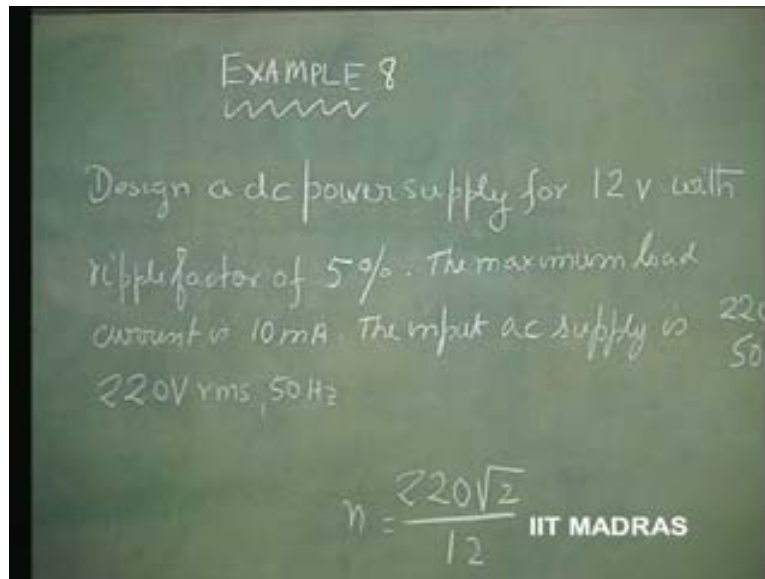 EXAMPLE 8
Design a dc power supply for 12 v with
ripple factor of 5%. The maximum load
current is 10 mA. The input ac supply is
220V rms, 50 Hz
220
50
n = 220√2 / 12
IIT MADRAS